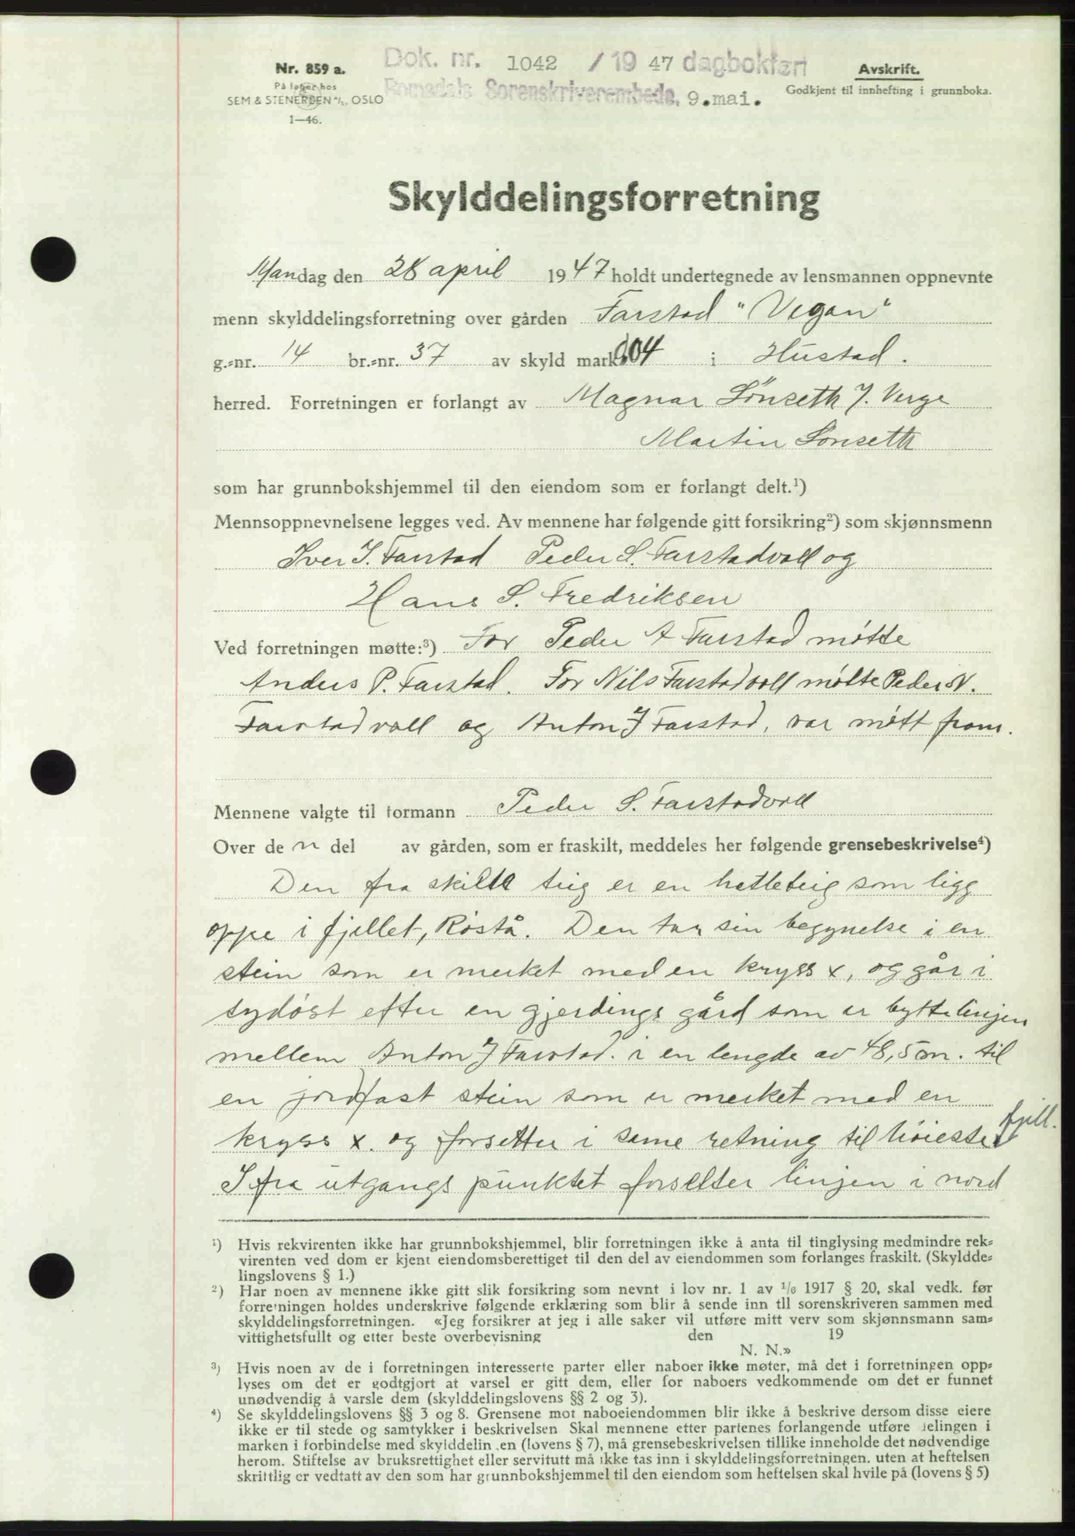 Nr. 859 a.
På lager hos
SEM & STENERSEN A/S, OSLO
1—46.
Dok. nr. 1042 / 19 47 dagbokført
Romsdals Sorenskriverembede, 9.mai.
Avskrift.
Godkjent til innhefting i grunnboka.
Skylddelingsforretning
Mandag den 28 april 1947 holdt undertegnede av lensmannen oppnevnte
menn skylddelingsforretning over gården Farstad "Vegan"
g.-nr. 14 br.-nr. 37 av skyld mark 0.04 i Hustad.
herred. Forretningen er forlangt av Magnar Sönseth f. Verge
Martin Sönseth
som har grunnbokshjemmel til den eiendom som er forlangt delt.¹)
Mennsoppnevnelsene legges ved. Av mennene har følgende gitt forsikring²) som skjønnsmenn
Iver J. Farstad Peder S. Farstadvoll og
Hans S. Fredriksen
Ved forretningen møtte:³) For Peder A Farstad møtte
Anders P. Farstad. For Nils Farstadvoll møtte Peder N.
Farstadvoll og Anton J Farstad, var møtt fram.
Mennene valgte til formann Peder S. Farstadvoll
Over de n del av gården, som er fraskilt, meddeles her følgende grensebeskrivelse⁴)
Den fra skilte teig er en hatleteig som ligg
oppe i fjellet, Røstå. Den tar sin begynelse i en
stein som er merket med en kryss x, og går i
sydøst efter en gjerdings gård som er byttelinjen
mellem Anton J Farstad. i en lengde av 48,5 m. til
en jordfast stein som er merket med en
kryss x. og forsetter i same retning til høieste fjell.
I fra utgangs punktet forsetter linjen i nord
¹) Hvis rekvirenten ikke har grunnbokshjemmel, blir forretningen ikke å anta til tinglysing medmindre rek-
virenten ved dom er kjent eiendomsberettiget til den del av eiendommen som forlanges fraskilt. (Skyldde-
lingslovens § 1.)
²) Har noen av mennene ikke gitt slik forsikring som nevnt i lov nr. 1 av 1/6 1917 § 20, skal vedk. før
forretningen holdes underskrive følgende erklæring som blir å sende inn til sorenskriveren sammen med
skylddelingsforretningen. «Jeg forsikrer at jeg i alle saker vil utføre mitt verv som skjønnsmann sam-
vittighetsfullt og etter beste overbevisning den 19
N. N.»
³) Hvis noen av de i forretningen interesserte parter eller naboer ikke møter, må det i forretningen opp-
lyses om det er godtgjort at varsel er gitt dem, eller for naboers vedkommende om det er funnet
unødvendig å varsle dem (skylddelingslovens §§ 2 og 3).
⁴) Se skylddelingslovens §§ 3 og 8. Grensene mot naboeiendommen blir ikke å beskrive dersom disse eiere
ikke er til stede og samtykker i beskrivelsen Skal mennene etter partenes forlangende utføre delingen i
marken i forbindelse med skylddelingen (lovens § 7), må grensebeskrivelsen tillike inneholde det nødvendige
herom. Stiftelse av bruksrettighet eller servitutt må ikke tas inn i skylddelingsforretningen, uten at heftelsen
skriftlig er vedtatt av den som har grunnbokshjemmel til den eiendom som heftelsen skal hvile på (lovens § 5)